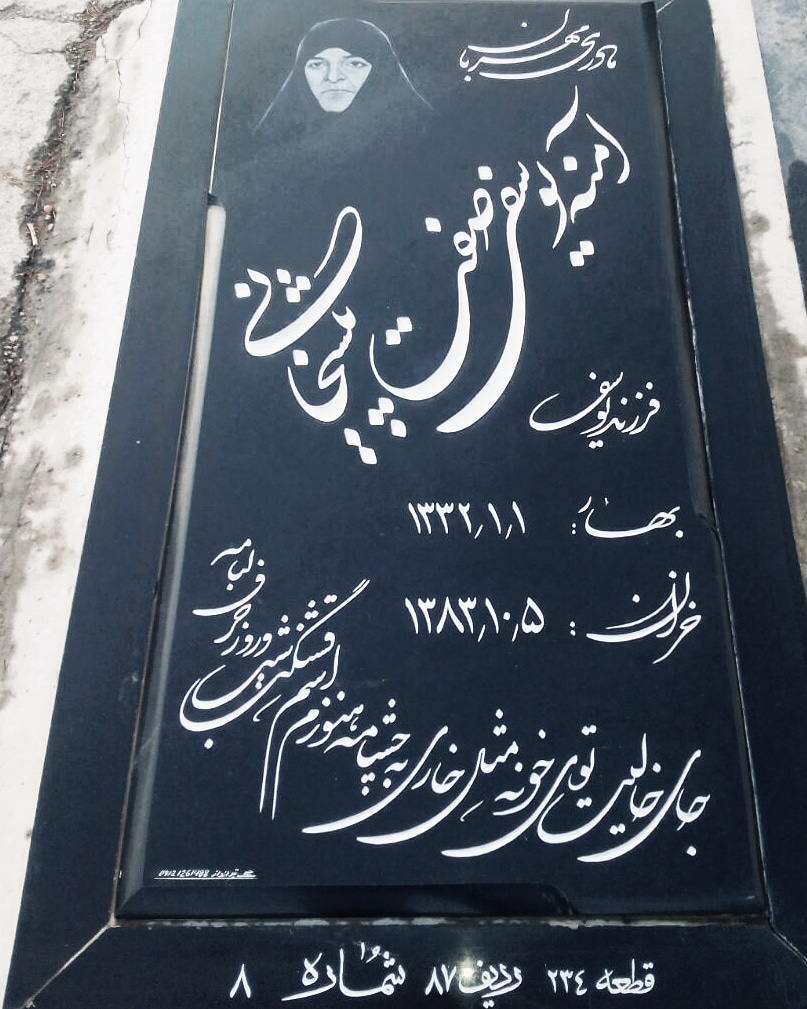 مادری مهربان
آمنه یوسف صفت
پسیخانی
فرزند یوسف
بهار : ۱۳۳۲/۱/۱
خزان : ۱۳۸۳/۱۰/۵
جای خالیت توی خونه مثل خاری به چشامه هنوزم
اسم قشنگت شب و روز حرف لبامه
قطعه ۲۳٤ ردیف ۸۷ شماره ۸